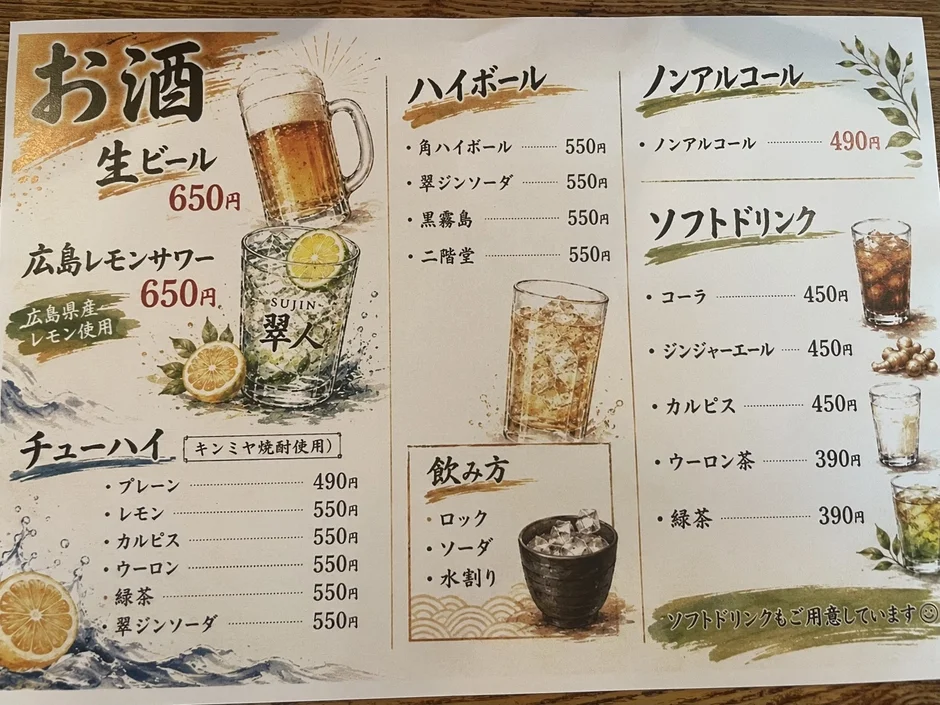 お酒
生ビール
650円
広島レモンサワー
650円
広島県産
レモン使用
SUJIN
翠人
チューハイ キンミヤ焼酎使用)
・プレーン 490円
・レモン 550円
・カルピス 550円
・ウーロン 550円
・緑茶 550円
・翠ジンソーダ 550円
ハイボール
・角ハイボール 550円
・翠ジンソーダ 550円
・黒霧島 550円
・二階堂 550円
飲み方
・ロック
・ソーダ
・水割り
ノンアルコール
・ノンアルコール 490円
ソフトドリンク
・コーラ 450円
・ジンジャーエール 450円
・カルピス 450円
・ウーロン茶 390円
・緑茶 390円
ソフトドリンクもご用意しています☺